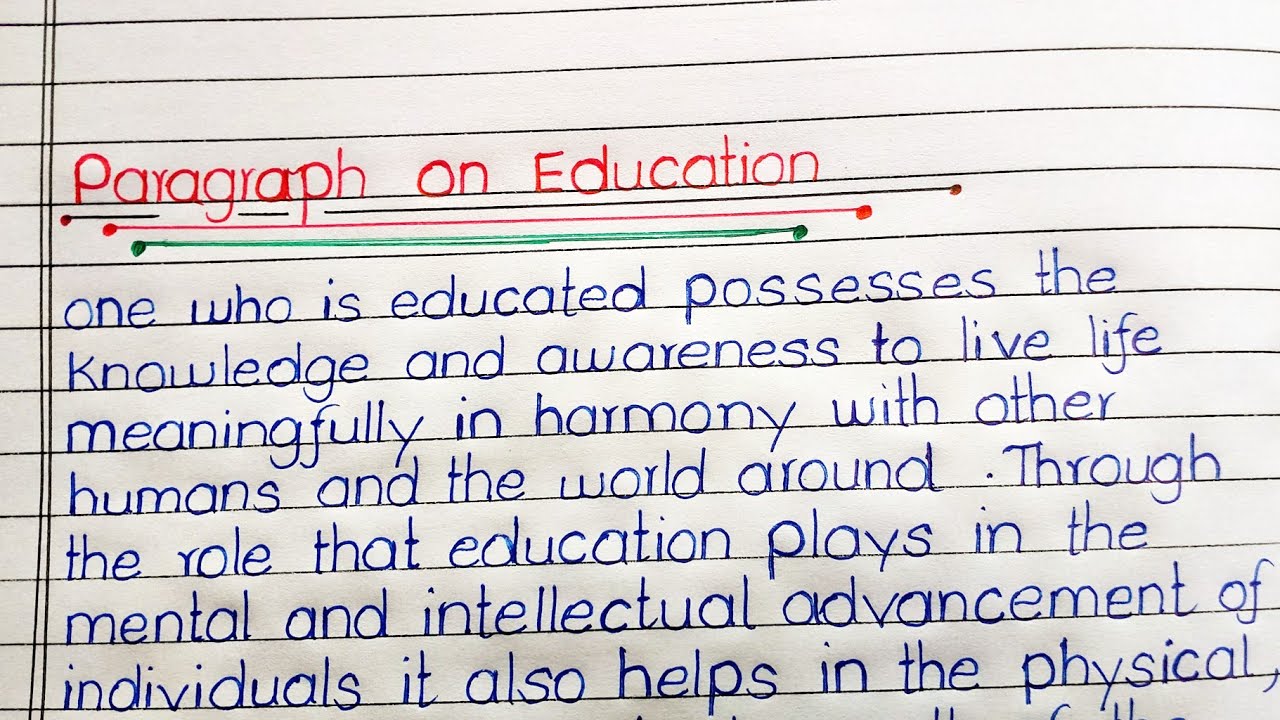 Paragraph on Education
one who is educated possesses the
Knowledge and awareness to live life
meaningfully in harmony with other
humans and the world around . Through
the role that education plays in the
mental and intellectual advancement of
individuals it also helps in the physical,